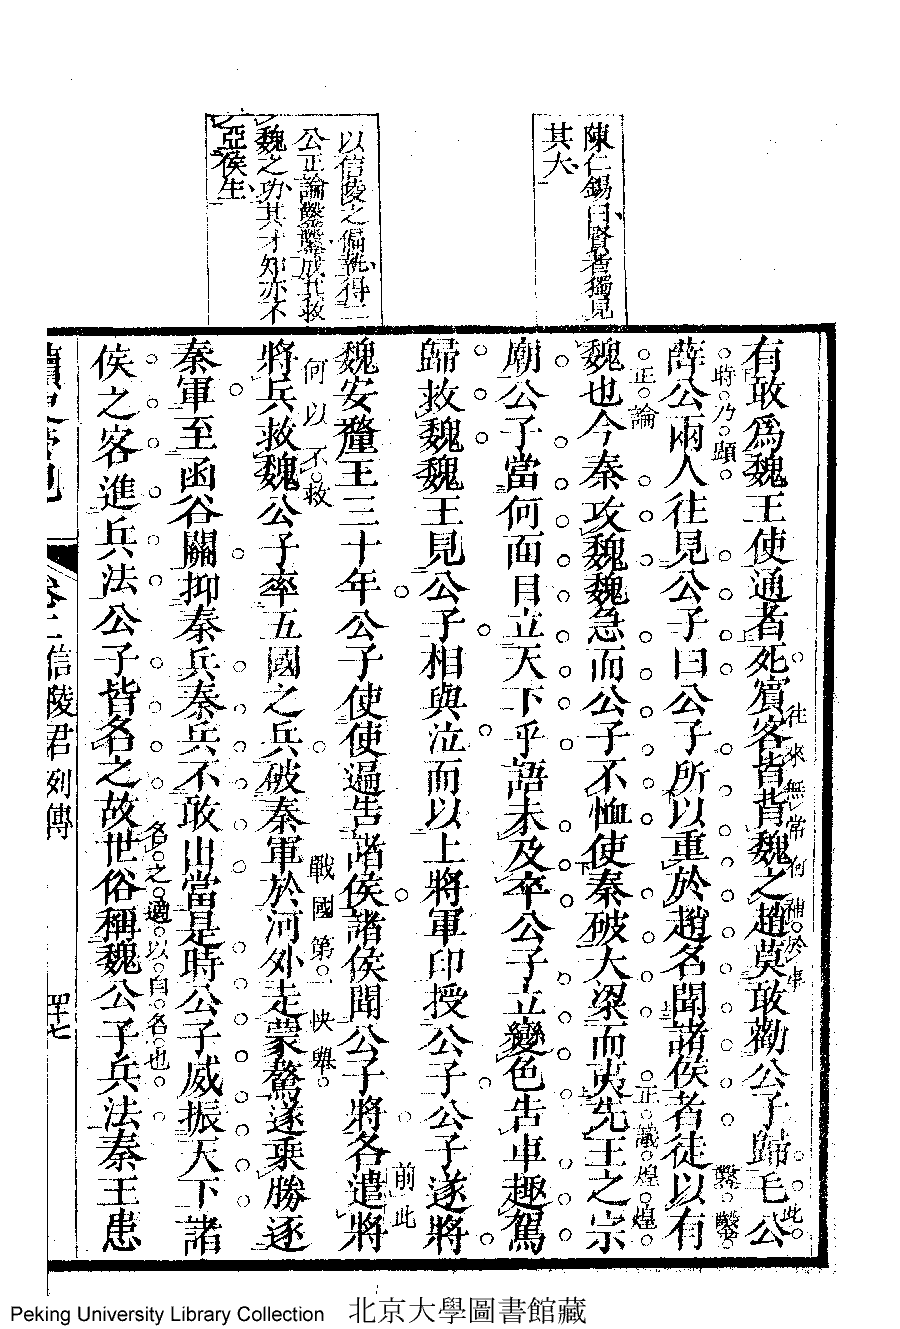 陳仁錫曰賢者獨見
其大
以信陵之偏執得二
公正論鑿鑿成其救
魏之功其才郊亦不
亞侯生
有敢為魏王使通者死賓客皆背魏之趙莫敢勸公子歸毛公
往來無常何補於事
此時乃顯
薛公兩人往見公子曰公子所以重於趙名聞諸侯者徒以有
鑿鑿正論
魏也今秦攻魏魏急而公子不恤使秦破大梁而夷先王之宗
正議煌煌
廟公子當何面目立天下乎語未及卒公子立變色告車趣駕
歸救魏魏王見公子相與泣而以上將軍印授公子公子遂將
魏安釐王三十年公子使使遍告諸侯諸侯聞公子將各遣將
前此何以不救
將兵救魏公子率五國之兵破秦軍於河外走蒙驁遂乘勝逐
戰國第一快舉
秦軍至函谷關抑秦兵秦兵不敢出當是時公子威振天下諸
侯之客進兵法公子皆名之故世俗稱魏公子兵法秦王患
名之適以自名也
讀史
卷二信陵君列傳
四十七
Peking University Library Collection 北京大學圖書館藏